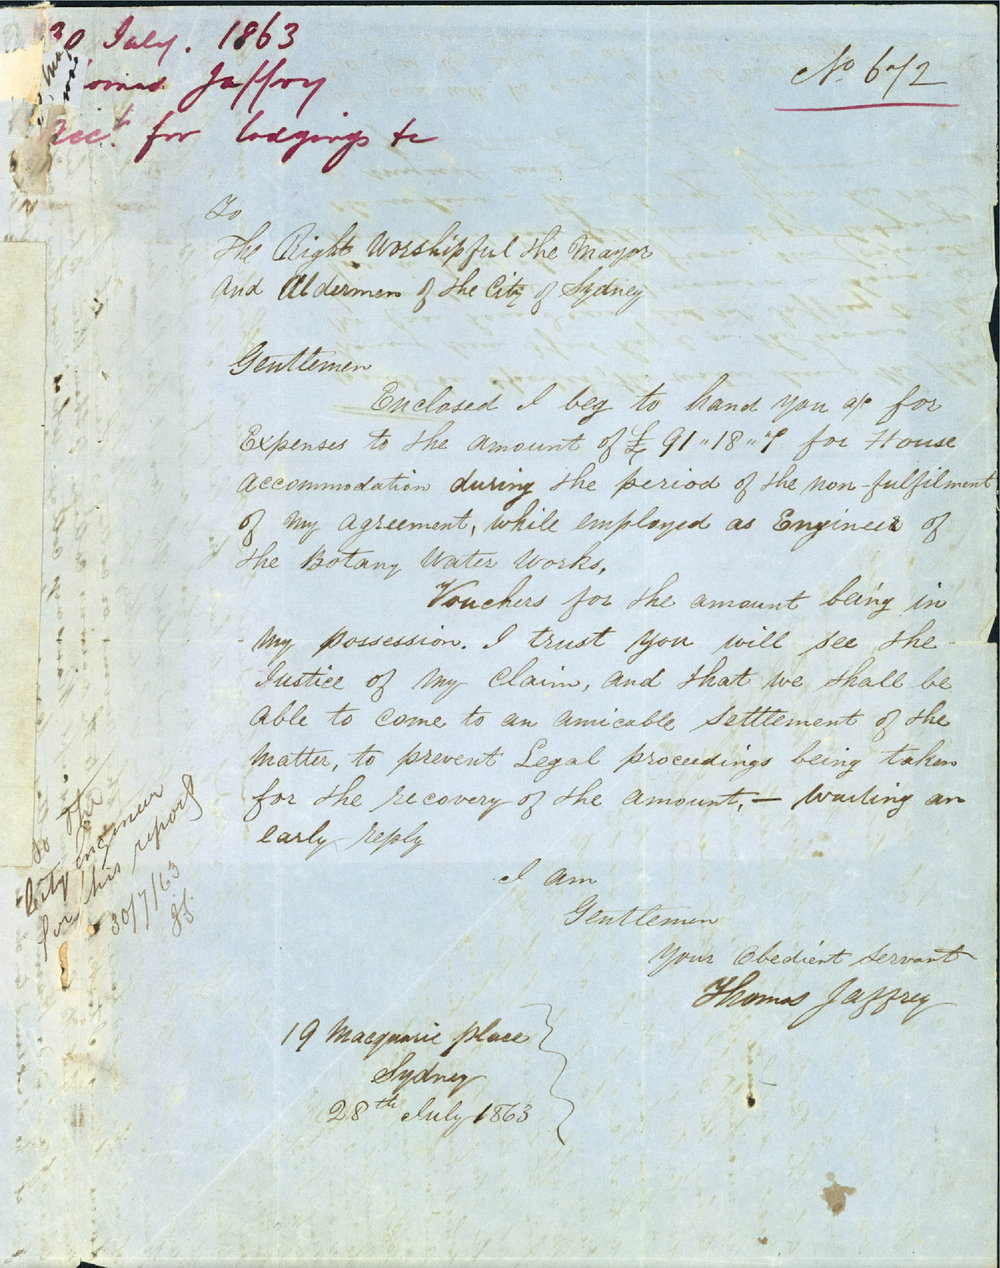 30 July. 1863
Thomas Jaffrey
Acct. for lodgings &c
No 672
To
The Right Worshipful the Mayor
and Aldermen of the City of Sydney
Gentlemen
Enclosed I beg to hand you a/c for
Expenses to the amount of £91"18"7 for House
accommodation during the period of the non-fulfilment
of my agreement, while employed as Engineer of
the Botany Water Works,
Vouchers for the amount being in
my possession. I trust you will see the
Justice of my Claim, and that we shall be
able to come to an amicable settlement of the
matter, to prevent Legal proceedings being taken
for the recovery of the amount, — waiting an
early reply
I am
Gentlemen
Your Obedient Servant
Thomas Jaffrey
19 Macquarie place
Sydney
28th July 1863
To the
City Engineer
for his report
30/7/63